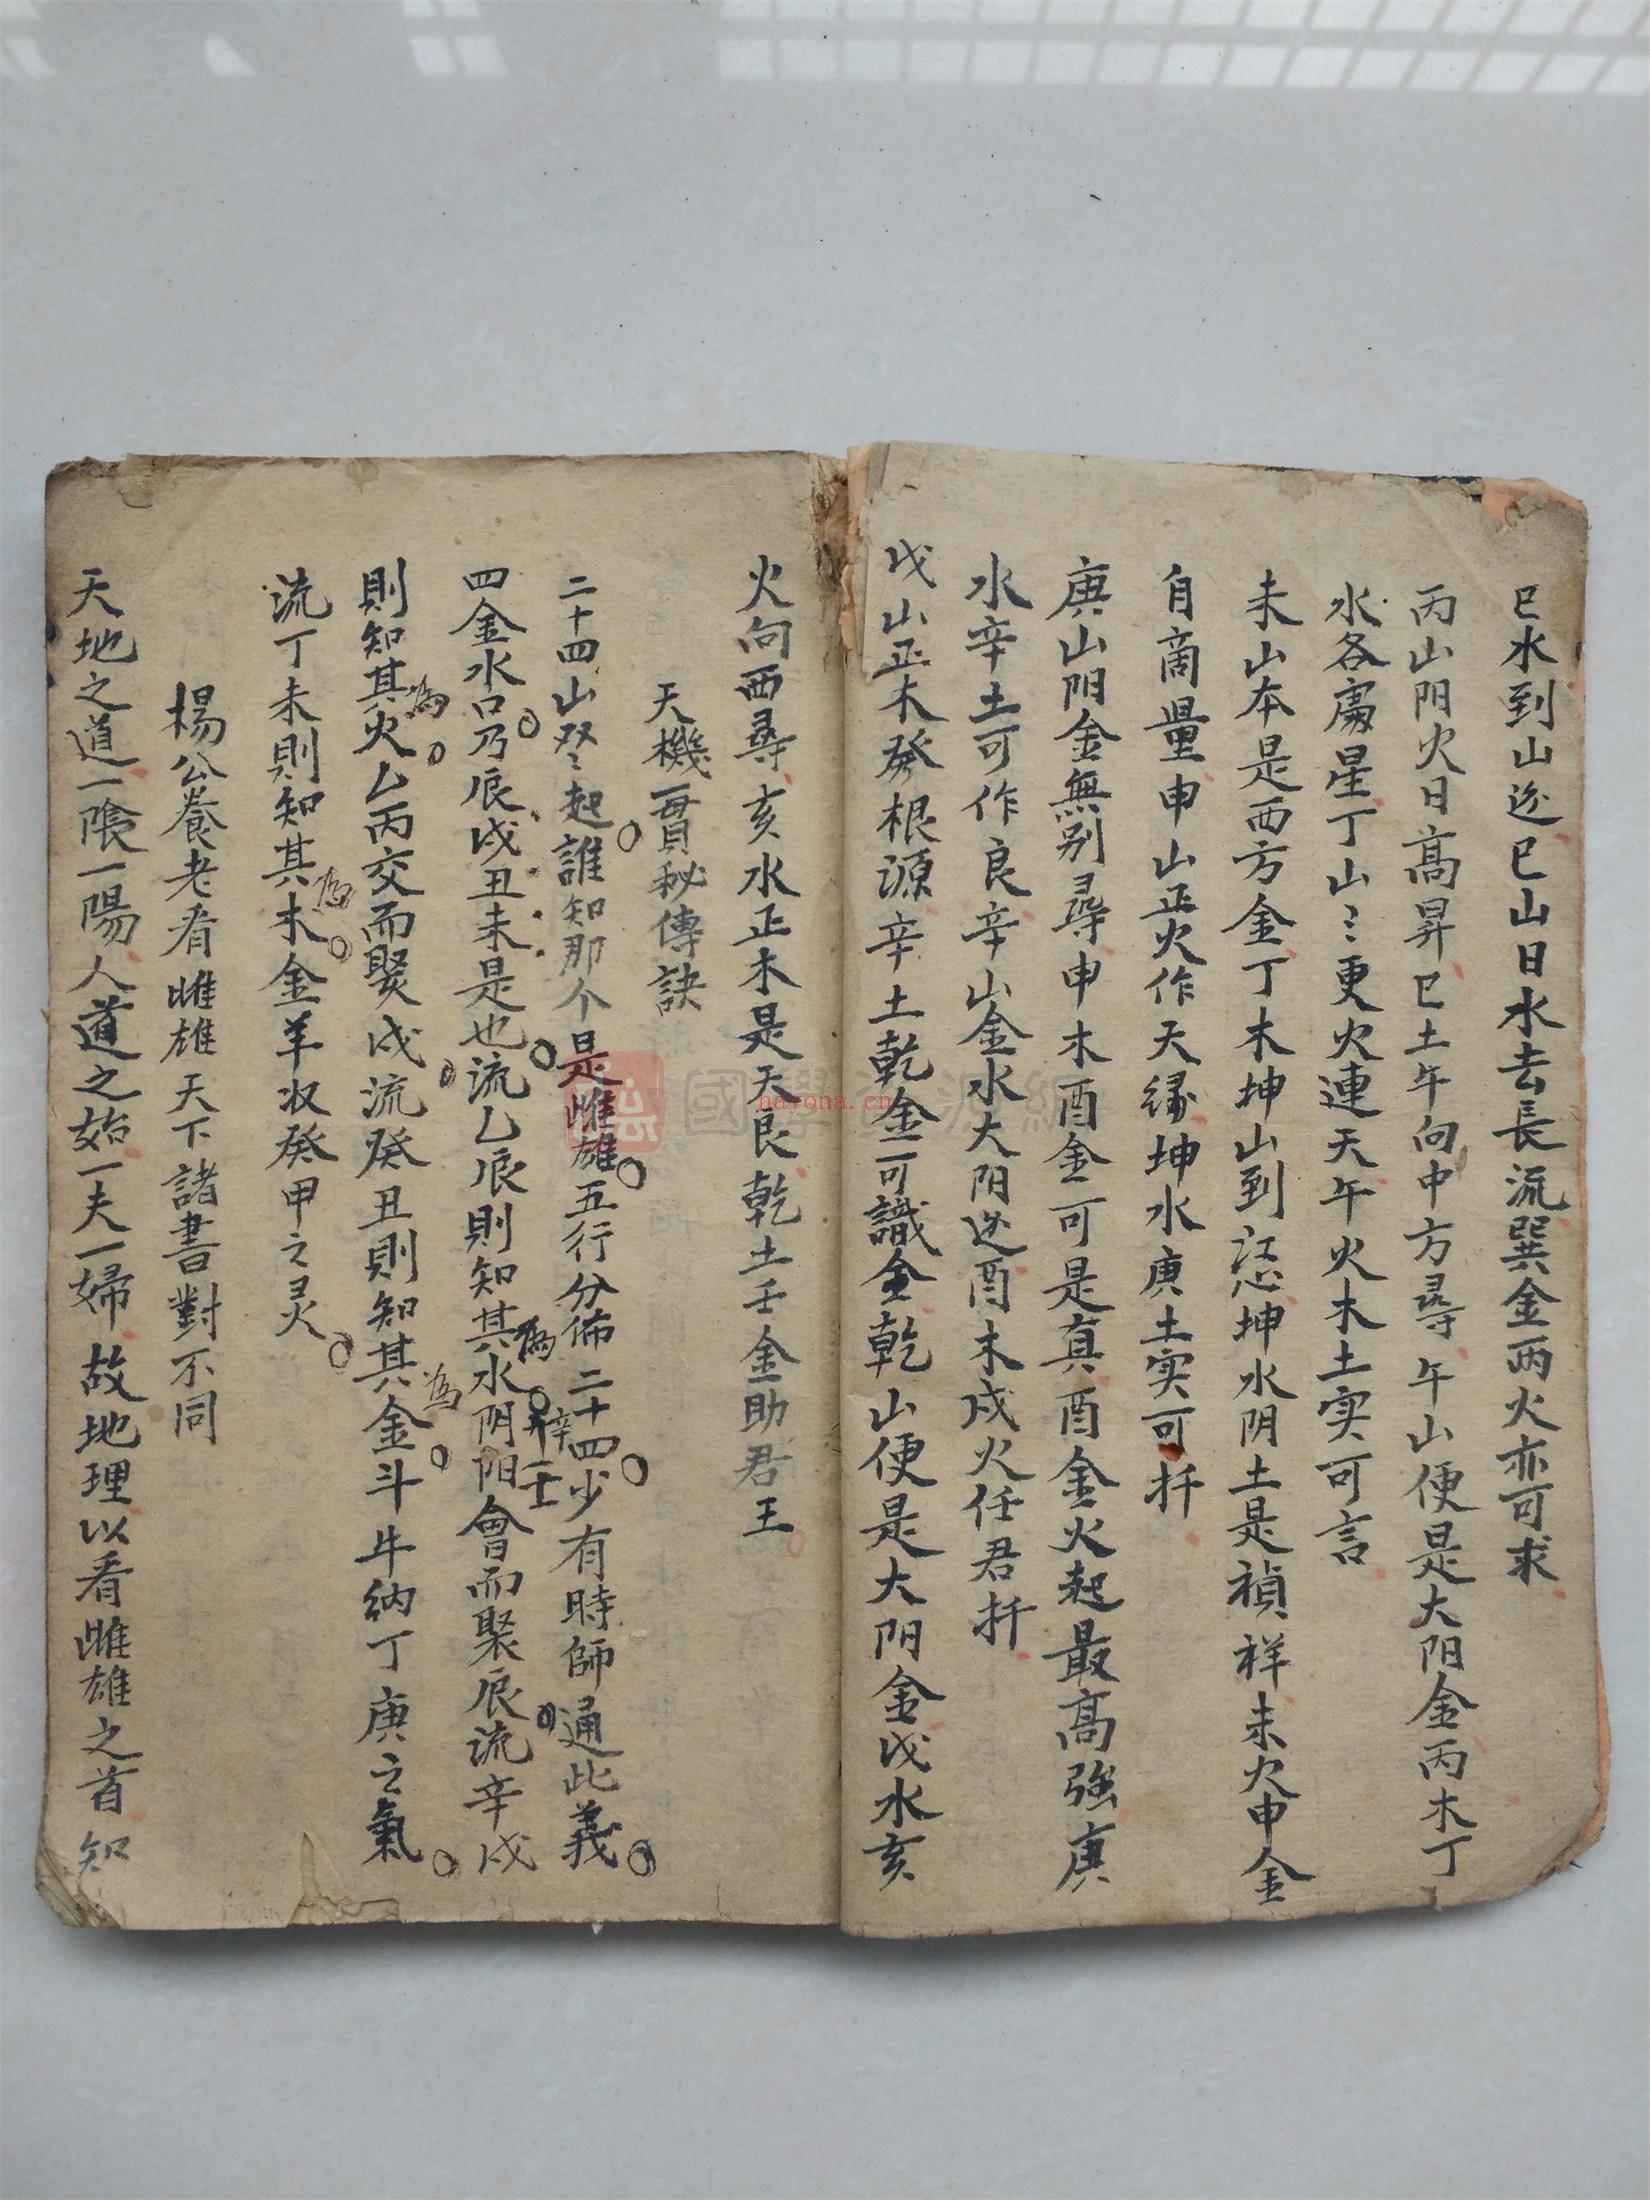 巳水到山迯巳山日水去長流巽金丙火亦可求
丙山阳火日髙昇巳土午向中方尋午山便是大阳金丙木丁
水各属星丁山〻更火連天午火木土实可言
未山本是西方金丁木坤山到坤水阴土是禎祥未火申金
自啇量申山正火作天缘坤水庚土实可扦
庚山阳金無别尋申木酉金可是真酉金火起最髙強庚
水辛土可作良辛山金水大阳迯酉木戍火任君扦
戍山正木癸根源辛土乾金可識金乾山便是大阳金戍水亥
火向西尋亥水正木是天良乾土壬金助君王
天機一貫秘傳訣
二十四山双〻起誰知那个是雌雄五行分佈二十四少有時師通此義
四金水口乃辰戍丑未是也流乙辰則知其為水阴阳會而聚辰流辛戍
辛壬
則知其為火乙丙交而聚戍流癸丑則知其為金斗牛納丁庚之氣
流丁未則知其為木金羊收癸甲之灵
楊公養老看雌雄天下諸書對不同
天地之道一陰一陽人道之始一夫一婦故地理以看雌雄之首知
國學資源網
nayona.cn